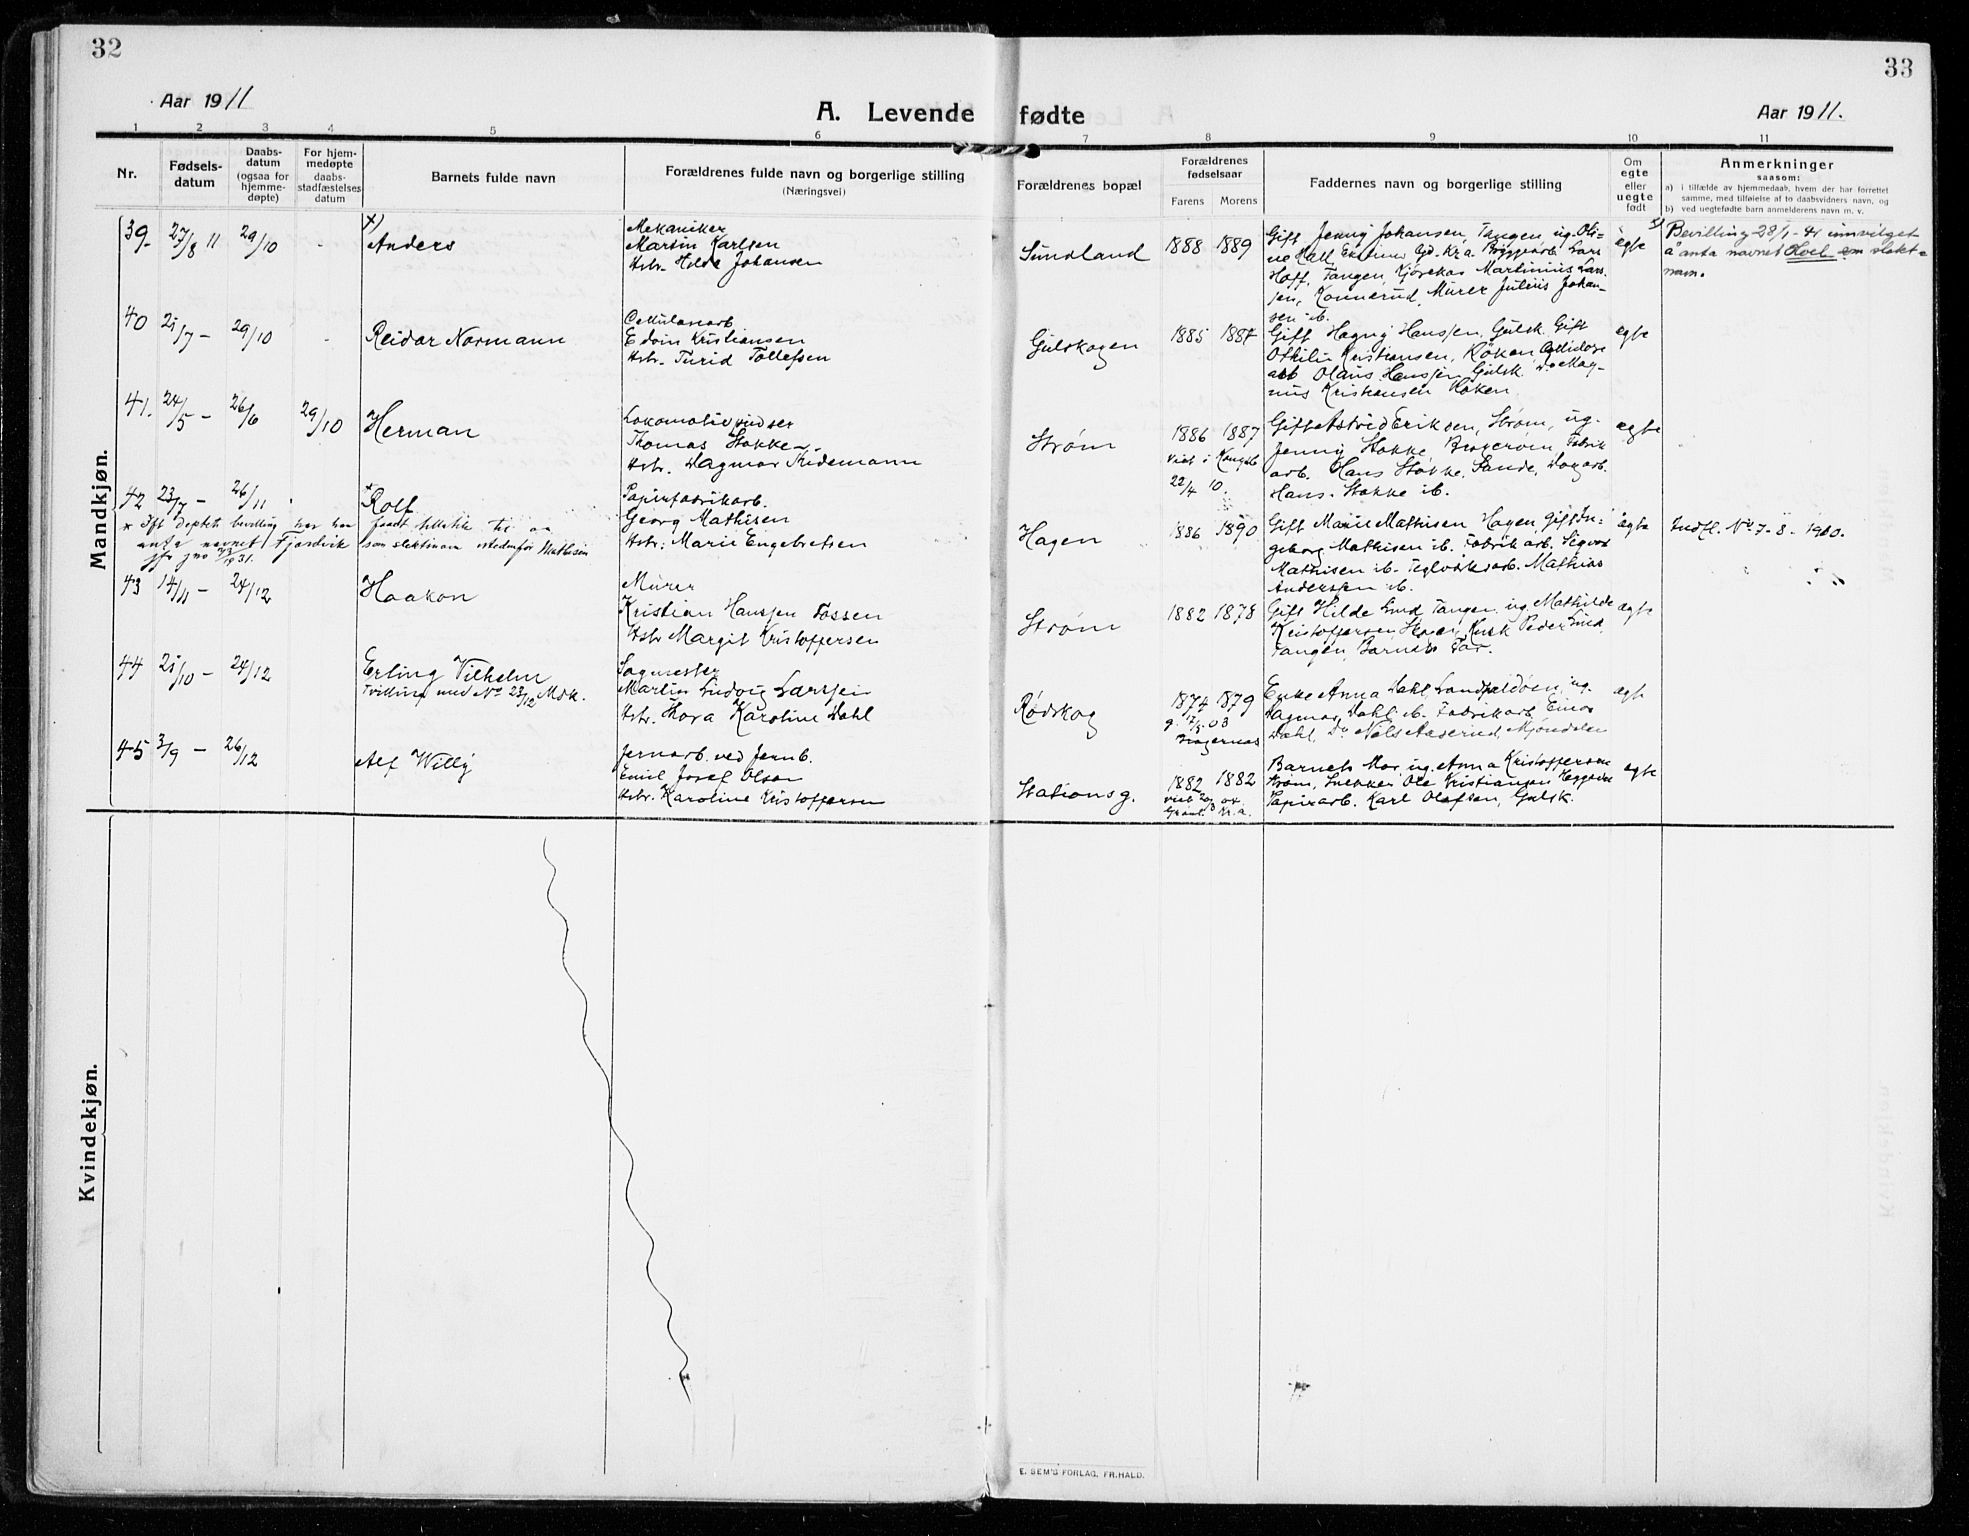 32
33
Aar 1911
A. Levende fødte
Aar 1911.
1 2 3 4 5 6 7 8 9 10 11
Nr.
Fødsels-
datum
Daabs-
datum
(ogsaa for
hjemme-
døpte)
For hjem-
medøpte
daabs-
stadfæstelses
datum
Barnets fulde navn
Forældrenes fulde navn og borgerlige stilling
(Næringsvei)
Forældrenes bopæl
Forældrenes
fødselsaar
Farens Morens
Faddernes navn og borgerlige stilling
Om
egte
eller
uegte
født
Anmerkninger
saasom:
a) i tilfælde av hjemmedaab, hvem der har forrettet
samme, med tilføielse af to daabsvidners navn, og
b) ved uegtefødte barn anmelderens navn m. v.
Mandkjøn.
39. 27/8 11 29/10 -
x)
Anders
Mekaniker
Martin Karlsen
Hstr. Hilda Johansen
Sundland
1888 1889
Gift Jenny Johansen, Tangen ug. Oli-
Hoff, Tangen, Kjørekar Martinius Lars-
sen, Konnerud, Murer Julius Johan-
sen ib.
egte
x) Bevilling 28/1-41 innvilget
å anta navnet Hoel som slekts-
navn.
40 21/7 - 29/10 -
Reidar Normann
Cellulosearb.
Edvin Kristiansen
Hstr. Turid Tollefsen
Gulskogen
1885 1887
Gift Hagny Hansen, Gulsk. Gift
Othilie Kristiansen, Køken, Cellulose
arb Olaus Hansen, Gulsk. Do Mag-
nus Kristiansen Køken.
egte
41. 24/5 - 26/6 29/10
Herman
Lokomotivpudser
Thomas Stokke
Hstr. Dagmar Tidemann
Strøm
1886 1887
Viet i Kongsb.
22/4 10.
Gift Astrid Eriksen, Strøm, ug.
Jenny Stokke, Bragerøen, Fabrik
arb. Hans Stokke, Sande, Dagarb.
Hans Stokke ib.
egte
42 23/7 - 26/11
* Rolf
Papirfabrikarb.
Georg Mathisen
Hstr. Marie Engebretsen
* Ift. deptets bevilling har han faaet tillatelse til aa
anta navnet Fjordvik som slektsnavn istedenfor Mathisen
Hagen
1886 1890
Gift Marie Mathisen Hagen, Gift In-
geborg Mathisen ib. Fabrikarb. Sigvart
Mathisen ib. Teglverksarb. Mathias
Andersen ib.
egte
Indfl. No 7-8-1910.
43 14/11 - 24/12
Haakon
Murer
Kristian Hansen Fossen
Hstr Margit Kristoffersen
Strøm
1882 1878
Gift Hilde Lind Tangen, ug. Mathilde
Kristoffersen, Kusk Peder Lind,
Tangen, Barnets Far.
egte
44 21/10 - 24/12
Erling Vilhelm
Tvilling med No 23/12 Mdk.
Sagmester
Martin Ludvig Larssen
Hstr. Thora Karoline Dahl
Rødskog
1874 1879
g. 17/5 03
Bragernæs
Enke Anna Dahl, Landfaldøen, ug.
Dagmar Dahl ib. Fabrikarb. Einar
Dahl, Do Nels Aaserud, Mjøndalen
egte
45 3/9 - 26/12
Alf Willy
Jernarb. ved Jernb.
Emil Josef Olsen
Hstr. Karoline Kristoffersen
Stationsg.
1882 1882
Kr.a.
Barnets Mor, ug. Anna Kristoffersen
Strøm, Snekker Ole Kristiansen
Papirarb. Karl Olafsen, Gulsk.
egte
Kvindekjøn.
E. SEM'S FORLAG, FR.HALD.